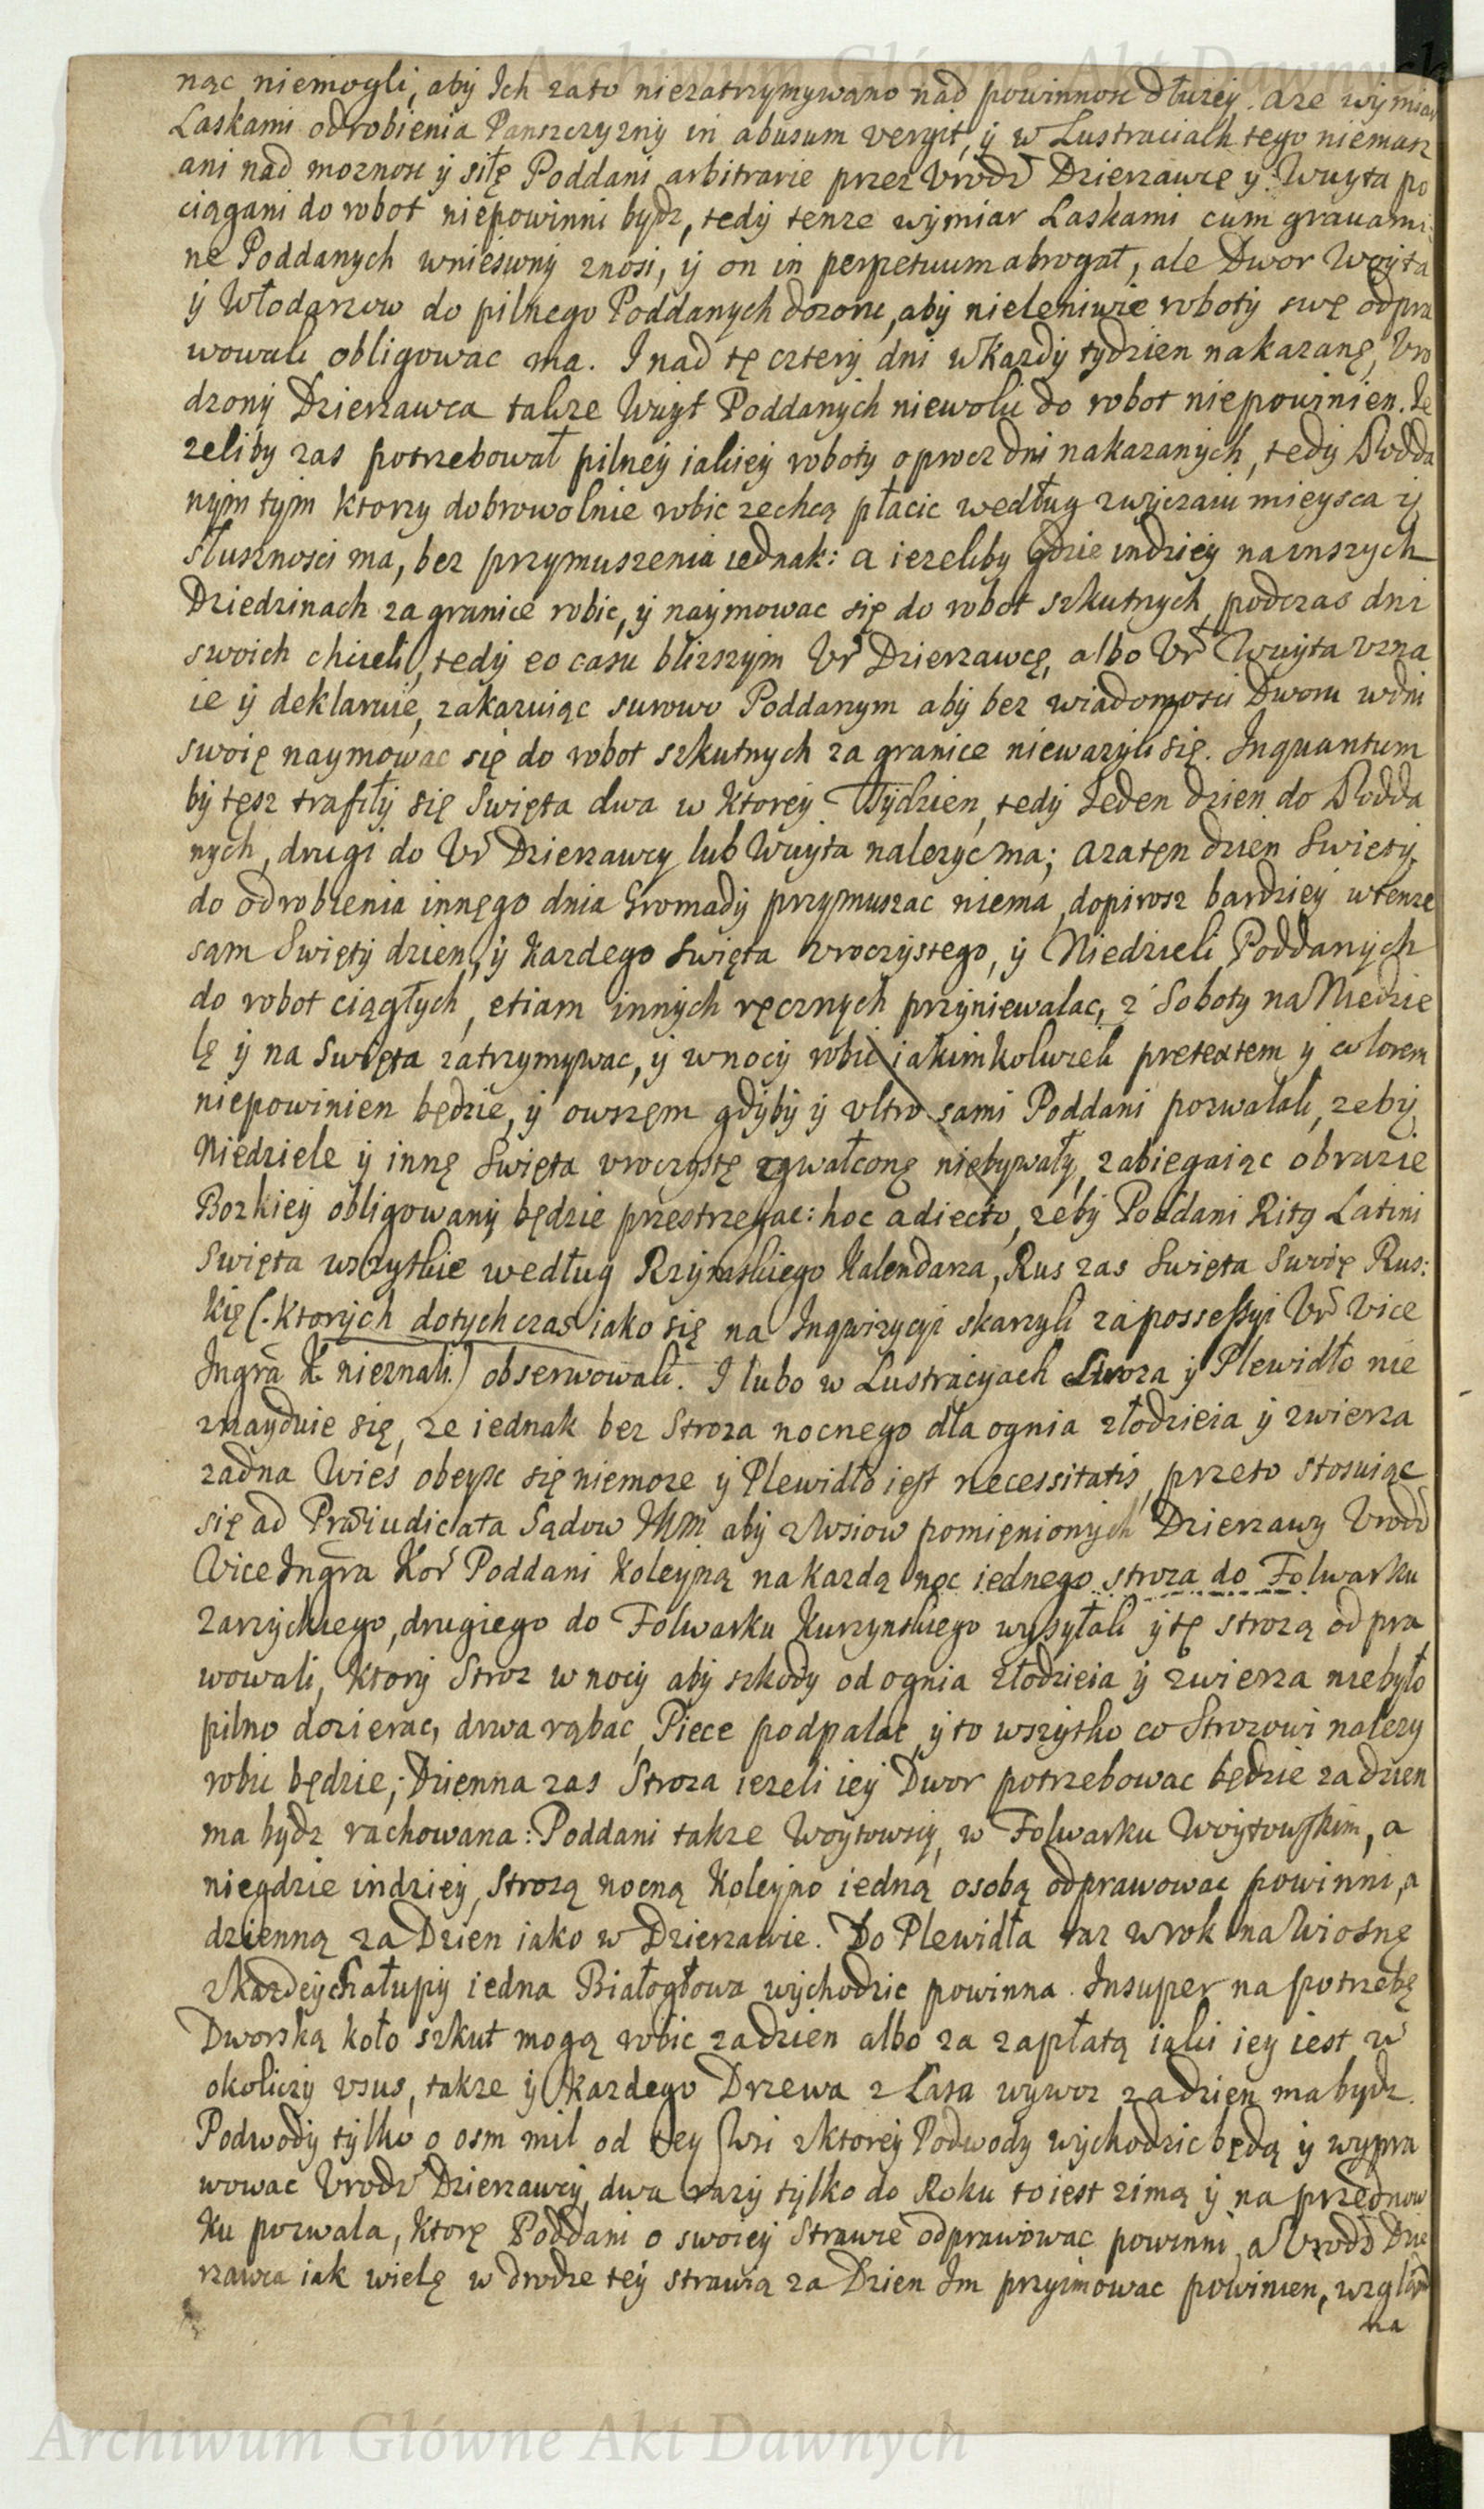 Archiwum Główne Akt Dawnych
nąc niemogli, aby Ich zato niezatrzymywano nad powinnosc dłuzey. aze wymiar
Laskami odrobienia Panszczyzny in abusum vergit, y w Lustraciach tego niemasz
ani nad moznosc y siłę Poddani arbitrarie przez Vrodź Dzierzawcę y Wuyta po
ciągani do robot niepowinni bydz, tedy tenze wymiar Laskami cum grauami:
ne Poddanych wniesiony znosi, y on in perpetuum abrogat, ale Dwor Woyta
y Włodarzow do pilnego Poddanych dozoru, aby nieleniwie roboty swę odpra
wowali obligowac ma. I nad tę cztery dni w kazdy tydzien nakazanę, Vro
dzony Dzierzawca takze Wuyt Poddanych niewolic do robot niepowinien. Ie
zeliby zas potrzebował pilney iakiey roboty oprocz dni nakazanych, tedy Podda
nym tym ktorzy dobrowolnie robic zechcą płacic według zwyczaiu mieysca y
słusznosci ma, bez przymuszenia iednak: a iezeliby gdzie indziey na inszych
Dziedzinach za granice robic, y naymowac się do robot szkutnych podczas dni
swoich chcieli, tedy eo casu blizszym Vr Dzierzawcę, albo Vr Wuyta vzna
ie y deklaruie, zakazuiąc surowo Poddanym aby bez wiadomosci Dworu w dni
swoię naymowac się do robot szkutnych za granice niewazyli się. Inquantum
by tęsz trafiły się Swięta dwa w ktorey Tydzien, tedy Ieden dzien do Podda
nych, drugi do Vr Dzierzawcy lub Wuyta nalezyc ma; a za tęn dzien Swięty
do odrobienia innęgo dnia Gromady przymuszac niema, dopirosz bardziey w tenze
sam Swięty dzien, y kazdego Swięta vroczystego, y Niedzieli Poddanych
do robot ciągłych, etiam innych ręcznych przyniewalac, z Soboty na Niedzie
lę y na Swięta zatrzymywac, y w nocy robic iakimkolwiek pretextem y colorem
niepowinien będzie, y owszęm gdyby y vltro sami Poddani pozwalali, zeby
Niedziele y innę Swięta vroczystę zgwałconę niebywały, zabiegaiąc obrazie
Bozkiey obligowany będzie przestrzegac: hoc adiecto, zeby Poddani Ritg Latini
Swięta wszytkie według Rzymskiego Kalendarza, Rus zas Swięta Swoię Rus:
kię (. ktorych dotychczas iako się na Inqwizycyi skarzyli za possessyi Vr Vice
Ingra K nieznali.) obserwowali. I lubo w Lustracyach Stroza y Plewidło nie
znayduie się, ze iednak bez Stroza nocnego dla ognia złodzieia y zwierza
zadna Wies obeysc się niemoze y Plewidło iest necessitatis, przeto stosuiąc
się ad Præiudicata Sądow IKM aby z Wsiow pomięnionych Dzierzawy Vrodź
Vice Ingra Kor Poddani koleyną na kazdą noc iednego stroza do Folwarku
Zarzyckiego, drugiego do Folwarku Kurzynskiego wysyłali y tę strozą odpra
wowali, ktory Stroz w nocy aby szkody od ognia złodzieia y zwierza niebyło
pilno dozierac, drwa rąbac, Piece podpalac, y to wszytko co Strozowi nalezy
robic będzie; Dzienna zas Stroza iezeli iey Dwor potrzebowac będzie za dzien
ma bydz rachowana: Poddani takze Woytowscy, w Folwarku Woytowskim, a
niegdzie indziey, Strozą nocną koleyno iedną osobą odprawowac powinni, a
dzienną za Dzien iako w Dzierzawie. Do Plewidła raz w rok na Wiosnę
z kazdey chałupy iedna Białogłowa wychodzic powinna. Insuper na potrzebę
Dworską koło szkut mogą robic za dzien albo za zapłatą iaki iey iest w
okoliczy vsus, takze y kazdego Drzewa z Lasa wywoz za dzien ma bydz.
Podwody tylko o osm mil od tey Wsi z ktorey Podwody wychodzic będą y wypra
wowac Vrodź Dzierzawcy dwa razy tylko do Roku to iest zimą y na przednow
ku pozwala, ktorę Poddani o swoiey Strawie odprawowac powinni, a Vrodź Dzie
rzawca iak wielę w drodze tey strawią za Dzien Im przyimowac powinien, wzgląd
na
Archiwum Główne Akt Dawnych